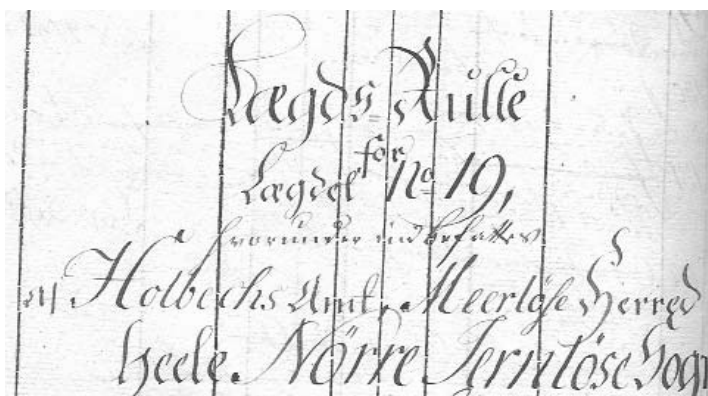 Lægds-Rulle
for
Lægdet No 19,
hvorunder indbefattes
af Holbechs Amt, Meerløse Herred
heele Nörre Jernlöse Sogn